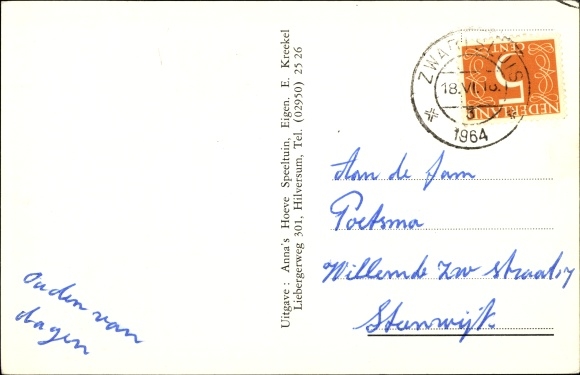 Uitgave : Anna's Hoeve Speeltuin, Eigen. E. Kreekel
Liebergerweg 301, Hilversum, Tel. (02950) 25 26
18.VI.
3
1964
5
CENT
NEDERLAND
Aan de fam
Poetsma
Willem de Zw straat
Steenwijk
Ouden van
dagen